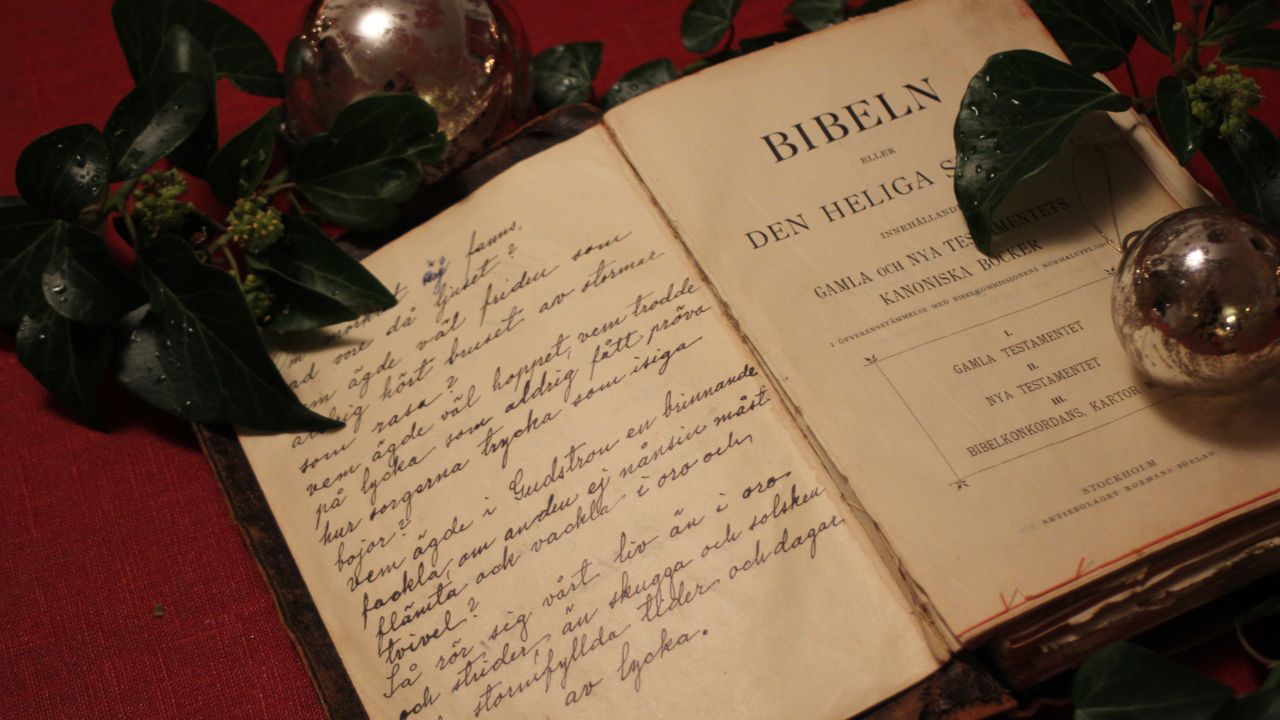 ej fanns,
vore då ljuset?
ägde väl friden som
aldrig hört bruset av stormar
som rasa?
vem ägde väl hoppet, vem trodde
på lycka som aldrig fått pröva
hur sorgerna trycka som isiga
bojor?
vem ägde i Gudstron en brinnande
fackla, om anden ej nånsin måst
flämta och vackla i oro och
tvivel?
Så rör sig vårt liv än i oro
och strider, än skugga och solsken
stormfyllda tider och dagar
av lycka.
BIBELN
ELLER
DEN HELIGA
INNEHÅLLANDE
GAMLA OCH NYA TESTAMENTETS
KANONISKA BÖCKER
I ÖFVERENSSTÄMMELSE MED BIBELKOMMISSIONENS NORMALUPPLAGOR
I.
GAMLA TESTAMENTET
II.
NYA TESTAMENTET
III.
BIBELKONKORDANS, KARTOR
STOCKHOLM
AKTIEBOLAGET NORMANS FÖRLAG